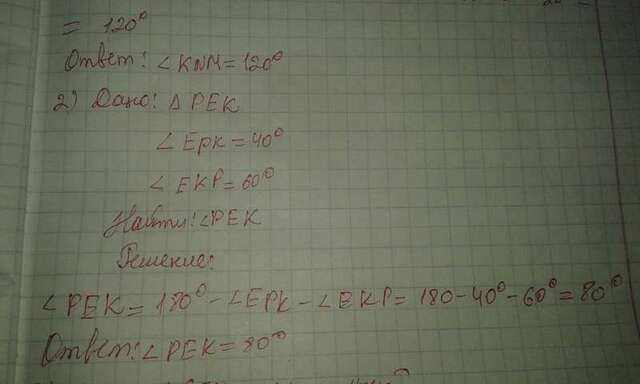 = 120°
Ответ: ∠KNM = 120°
2) Дано: △ PEK
∠ EPK = 40°
∠ EKP = 60°
Найти: ∠PEK
Решение:
∠PEK = 180° - ∠EPK - ∠EKP = 180 - 40° - 60° = 80°
Ответ: ∠PEK = 80°